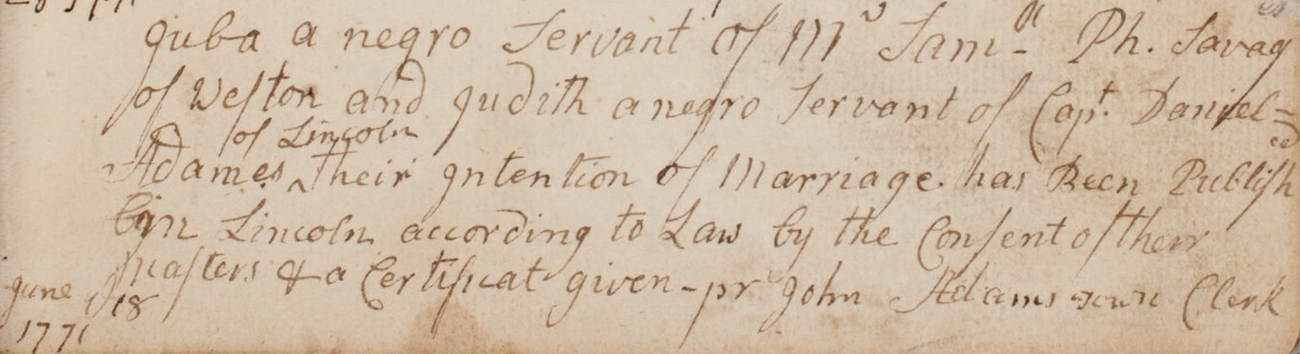 Juba a negro Servant of Mr Samll Ph. Savag
of Weston and Judith a negro Servant of Capt. Daniel=
of Lincoln
Adames ^ their Intention of Marriage has Been Publish
ed
in Lincoln according to Law by the Consent of their
masters & a Certificat given - pr John Adams town Clerk
June 18
1771